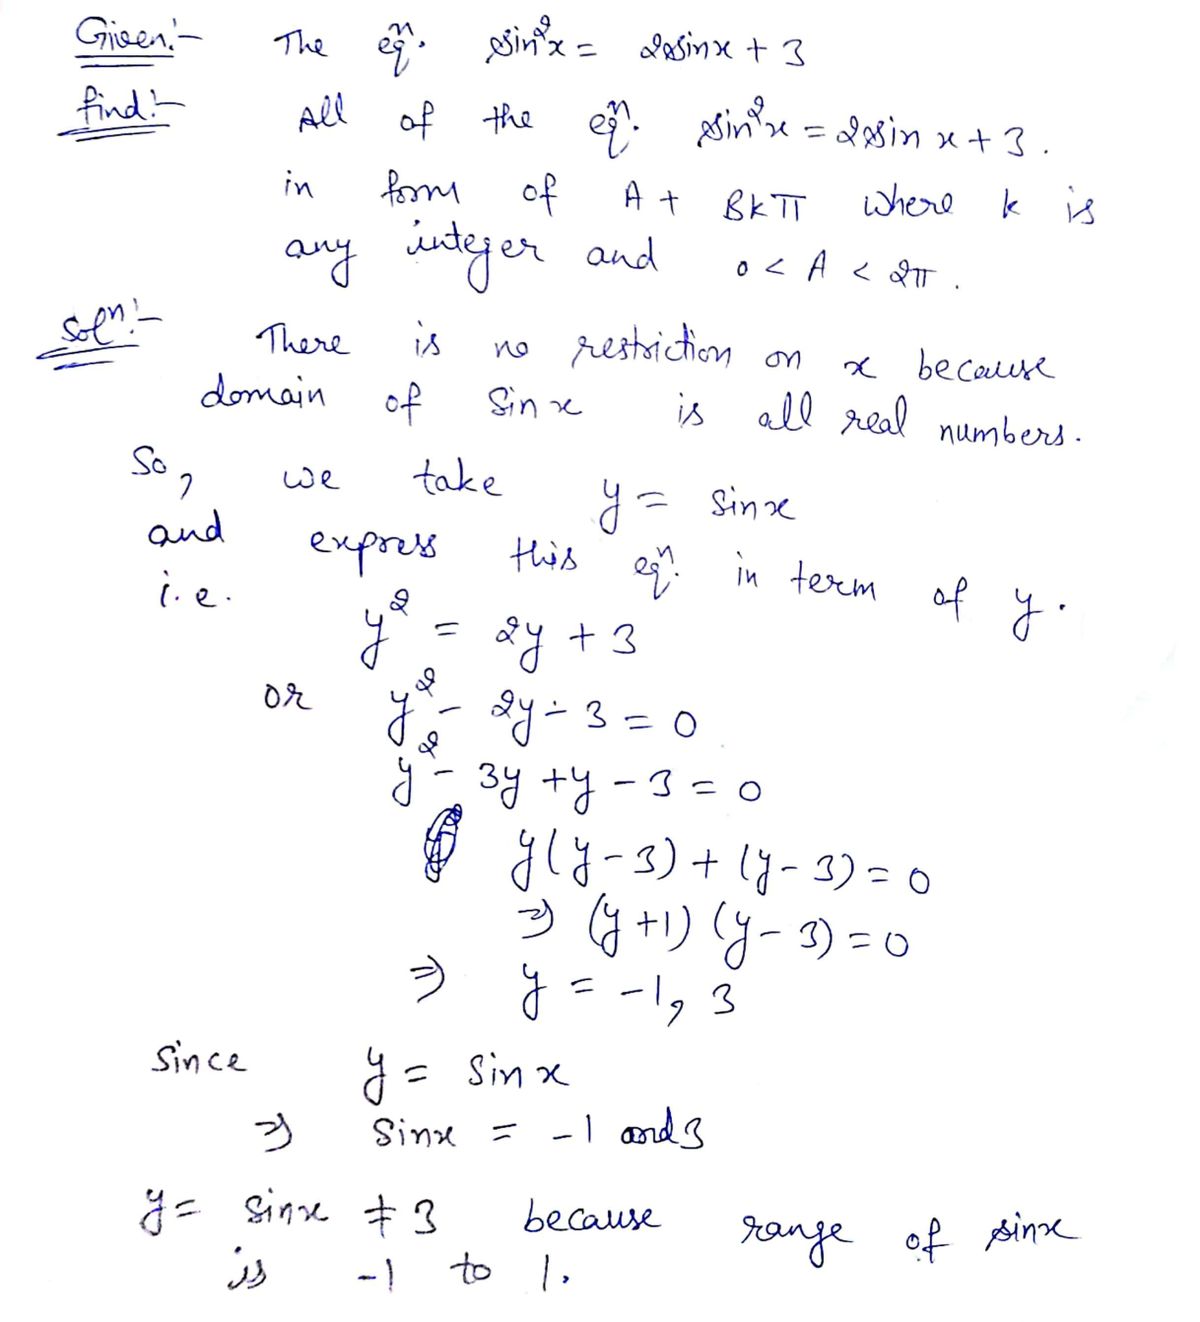 Given:- The eqn. sin²x = 2sinx + 3
find:- All of the eqn. sin²x = 2sin x + 3.
in form of A + BKπ where k is
any integer and 0 < A < 2π.
Soln:- There is no restriction on x because
domain of Sin x is all real numbers.
So, we take y = sinx
and express this eqn. in term of y.
i.e.
y² = 2y + 3
or y² - 2y - 3 = 0
y² - 3y + y - 3 = 0
y(y-3) + (y-3) = 0
⇒ (y+1) (y-3) = 0
⇒ y = -1, 3
Since y = Sin x
⇒ Sinx = -1 and 3
y = Sinx ≠ 3 because range of sinx
is -1 to 1.